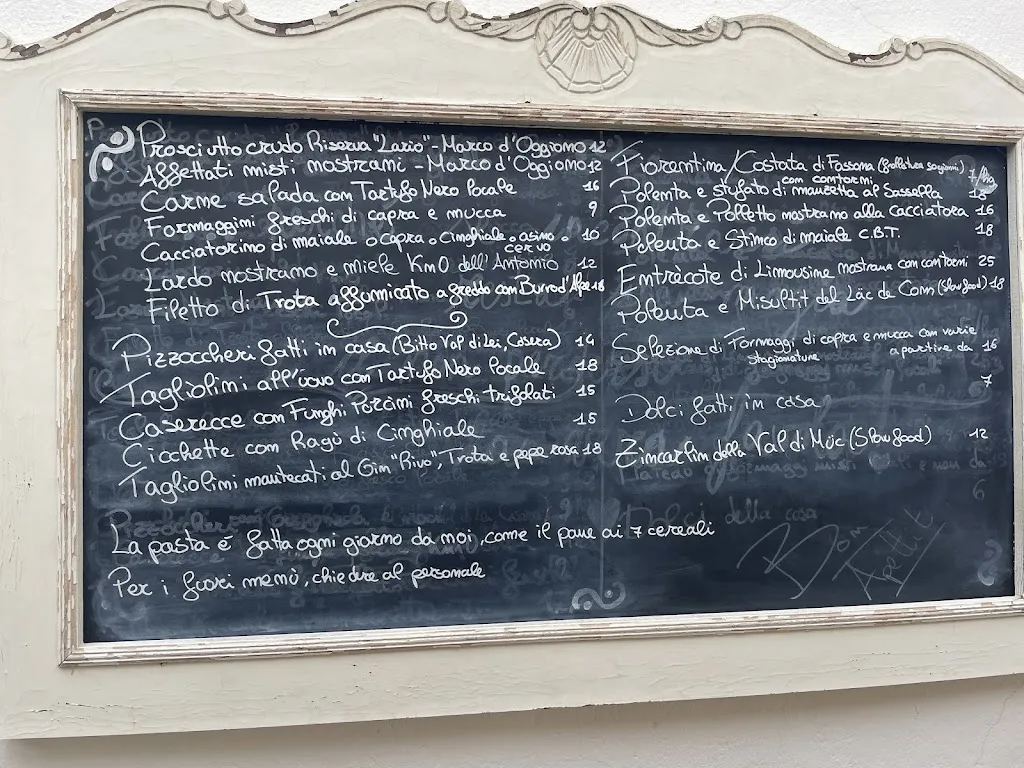 Prosciutto crudo Riserva "Lario" - Marco d'Oggiono 12
Affettati misti nostrani - Marco d'Oggiono 12
Carne salada con Tartufo Nero locale 16
Formaggini freschi di capra e mucca 9
Cacciatorino di maiale o capra o cinghiale o asino o cervo 10
Lardo nostrano e miele Km0 dell'Antonio 12
Filetto di Trota affumicato a freddo con Burro d'Alpe 18
Pizzoccheri fatti in casa (Bitto Val di Lei, Casera) 14
Tagliolini all'uovo con Tartufo Nero locale 18
Caserecce con Funghi Porcini freschi trifolati 15
Cicchette con Ragù di Cinghiale 15
Tagliolini mantecati al Gin "Rivo", Trota e pepe rosa 18
La pasta é fatta ogni giorno da noi, come il pane ai 7 cereali
Per i fuori menù, chiedere al personale
Fiorentina/Costata di Fassona
con contorni
Polenta e stufato di manzetta al Sassella 18
Polenta e Polletto nostrano alla Cacciatora 16
Polenta e Stinco di maiale C.B.T. 18
Entrècote di Limousine nostrana con contorni 25
Polenta e Misultit del Läc de Comm (Slow food) 18
Selezione di Formaggi di capra e mucca con varie
stagionature a partire da 16
Dolci fatti in casa 7
Zincarlin della Val di Müc (Slow food) 12
6
Dolci della casa
Bon
Apetit